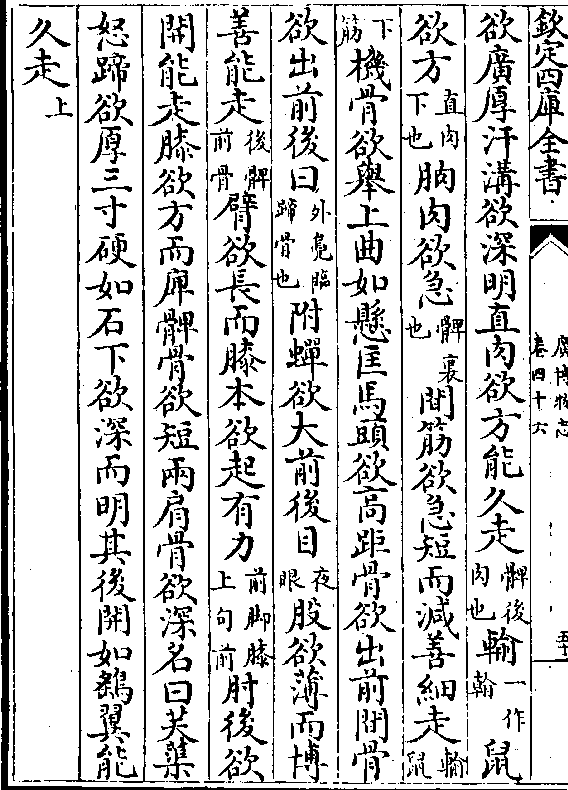 欽定四庫全書
廣博物志
卷四十六
五十
欲廣厚汗溝欲深明直肉欲方能久走髀後肉也輸一作翰鼠
欲方直肉下也朒肉欲急髀裏也間筋欲急短而減善細走輸鼠
下筋機骨欲舉上曲如懸匡馬頭欲高距骨欲出前間骨
欲出前後曰外鳧臨蹄骨也附蟬欲大前後目夜眼股欲薄而博
善能走後髀前骨臂欲長而膝本欲起有力前脚膝上句前肘後欲
開能走膝欲方而庳髀骨欲短兩肩骨欲深名曰前渠
怒蹄欲厚三寸硬如石下欲深而明其後開如鷂翼能
久走上